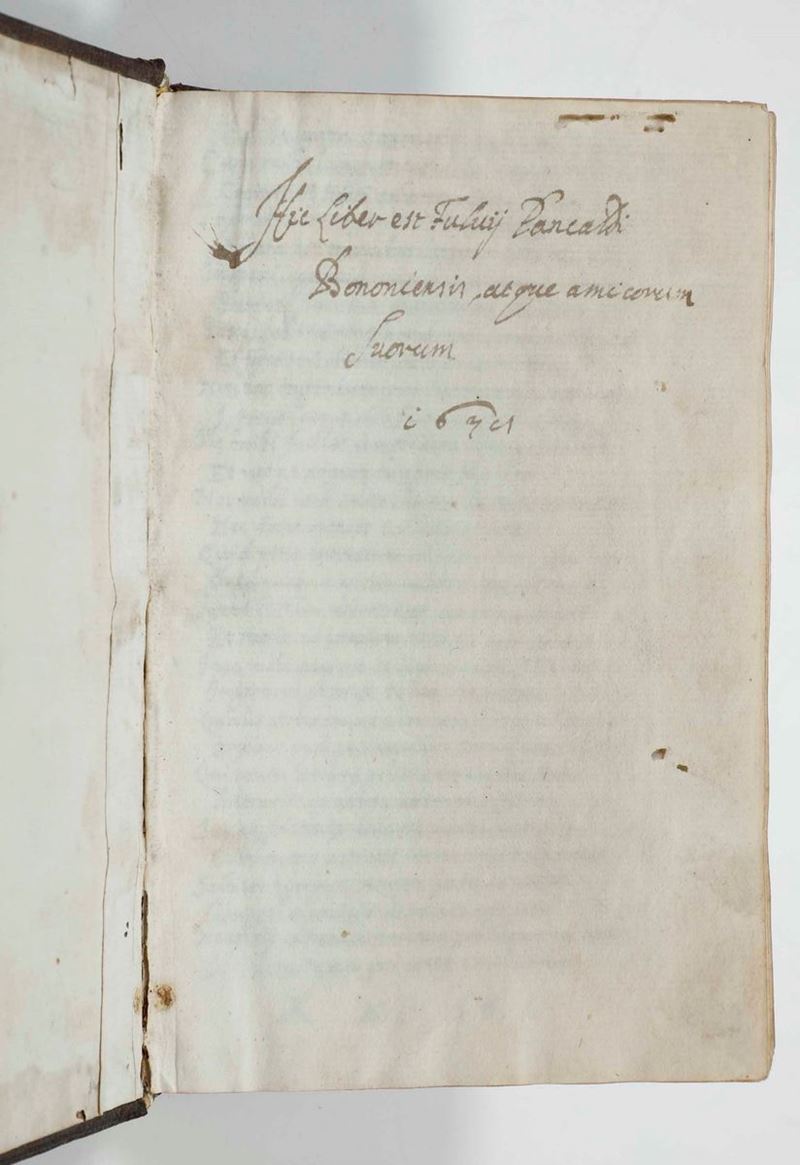 Hic Liber est Fuluij Pancaldi
Bononiensis, atque amicorum
Suorum